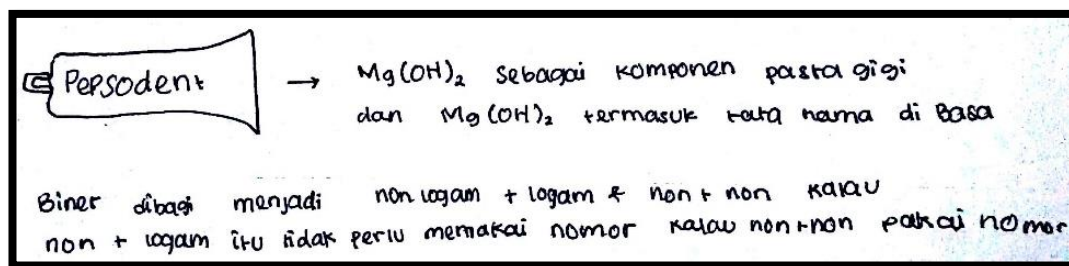 Pepsodent → Mg(OH)₂ sebagai komponen pasta gigi
dan Mg(OH)₂ termasuk tata nama di Basa
Biner dibagi menjadi non logam + logam & non + non kalau
non + logam itu tidak perlu memakai nomor kalau non+non pakai nomor